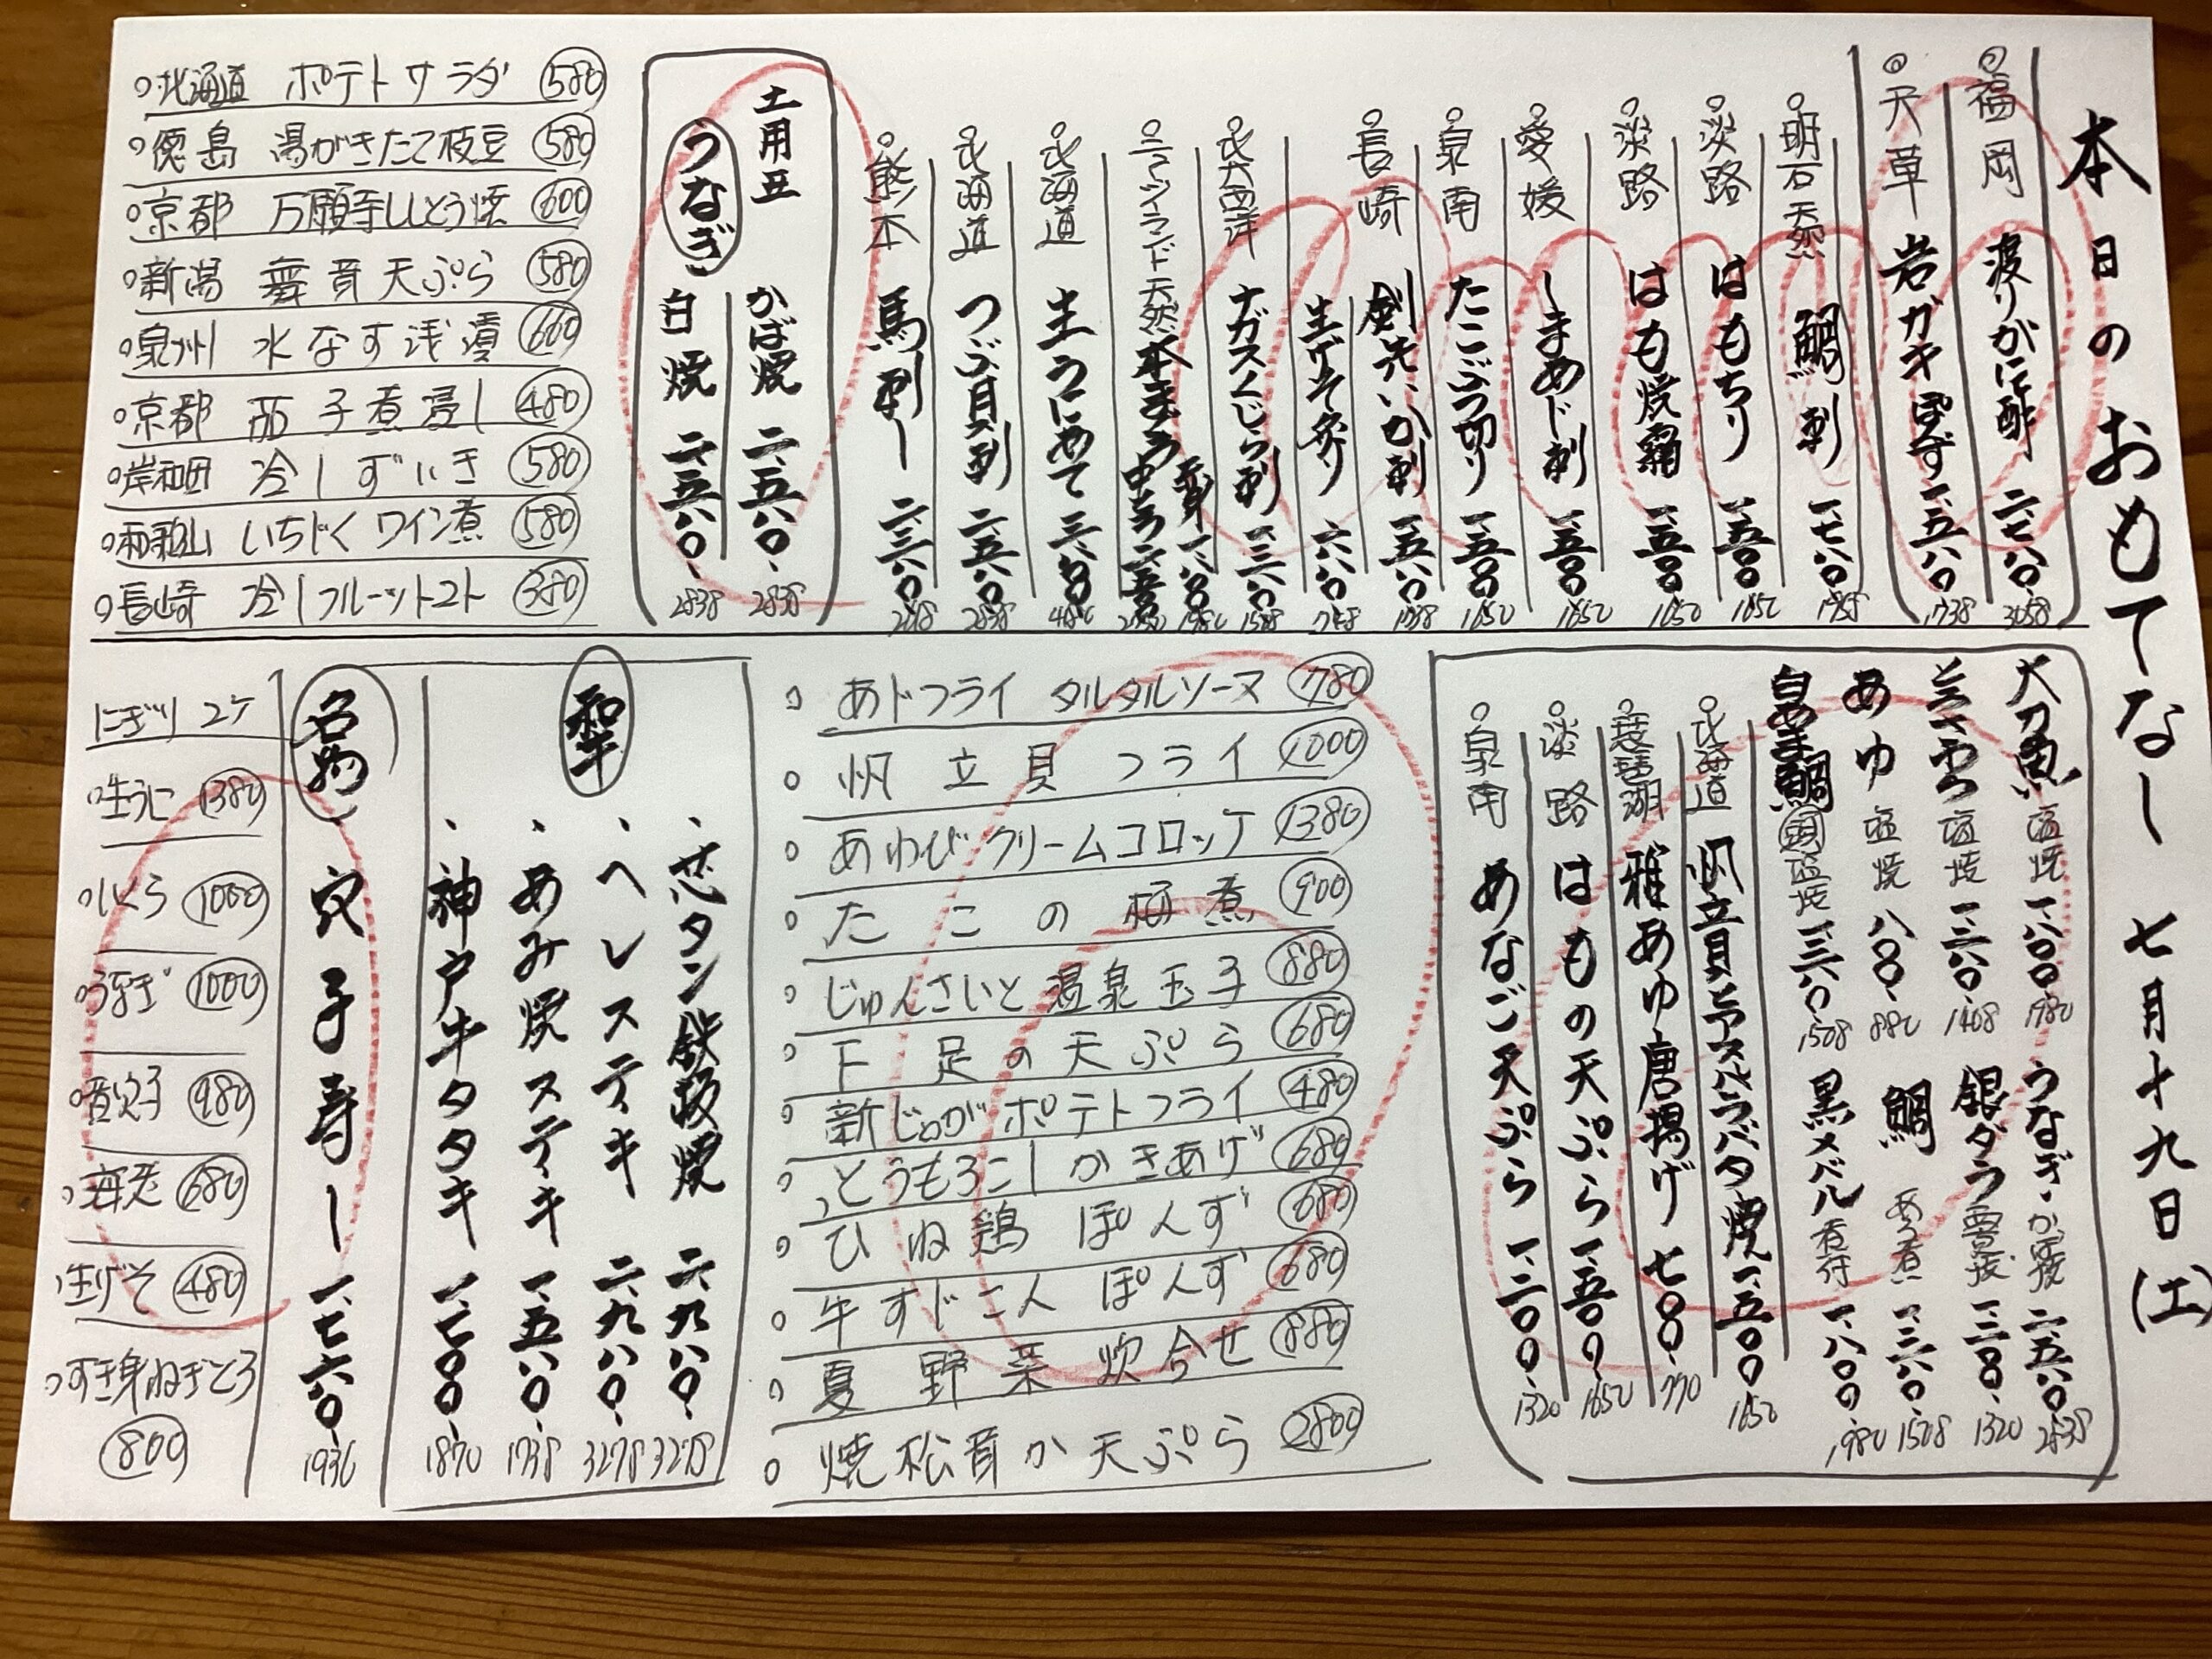 本日のおもてなし 七月十九日(土)
福岡 渡りがに酢 二、七八〇、 3058
天草 岩ガキぽん酢 一、五八〇 1738
明石天然 鯛刺 一、七八〇
淡路 はもちり 一、五〇〇 1650
淡路 はも焼霜 一、五〇〇 1650
愛媛 しまあじ刺 一、五〇〇 1650
泉南 たこぶつ切り 一、五〇〇 1650
長崎 剣先いか刺
生げそ 六八〇 748
北大西洋 ナガスくじら刺 一、三八〇
ニュージーランド天然本まぐろ 赤身 一、八〇〇 1980
中とろ
北海道 生うにやて
北海道 つぶ貝刺 二、五八〇 2838
熊本 馬刺し 二、三八〇
土用丑 うなぎ
かば焼 二、五八〇、 2838
白焼 二、五八〇、 2838
北海道 ポテトサラダ 580
徳島 湯がきたて枝豆 580
京都 万願寺ししとう焼 600
新潟 舞茸天ぷら 580
泉州 水なす浅漬 600
京都 茄子煮浸し 480
岸和田 冷しずいき 580
和歌山 いちじくワイン煮 580
長崎 冷しフルーツトマト 380
太刀魚 塩焼 一、八〇〇、 1980
とろさば 塩焼 一、二八〇、 1408
あゆ 塩焼 八〇〇、 880
白あま鯛 頭 塩焼 一、三八〇、 1508
うなぎ かぶと焼 二、五八〇、 2838
銀ダラ 一、二〇〇、 1320
鯛 あら煮 一、三八〇、 1508
黒メバル 煮付 一、八〇〇、 1980
北海道 帆立貝とアスパラバター焼 一、五〇〇 1650
琵琶湖 稚あゆ唐揚げ 七〇〇、 770
淡路 はもの天ぷら 一、五〇〇、 1650
泉南 あなご天ぷら 一、二〇〇、 1320
あじフライ タルタルソース 780
帆立貝フライ 1000
あわびクリームコロッケ 1380
たこの柚煮 900
じゅんさいと温泉玉子 880
下足の天ぷら 680
新じゃがポテトフライ 480
とうもろこしかきあげ 680
ひね鶏ぽんず 680
牛すじこんぽんず 680
夏野菜炊合せ 880
焼松茸か天ぷら 2800
和牛
芯タン鉄板焼 二、九八〇、 3278
ヘレステーキ 二、九八〇、 3278
あみ焼ステーキ 一、五八〇、 1738
神戸牛タタキ 一、七〇〇、 1870
名物 穴子寿し 一、七六〇、 1936
にぎり 2ケ
生うに 1380
いくら 1000
うなぎ 1000
煮穴子 980
海老 680
生げそ 480
すき身ねぎとろ
800